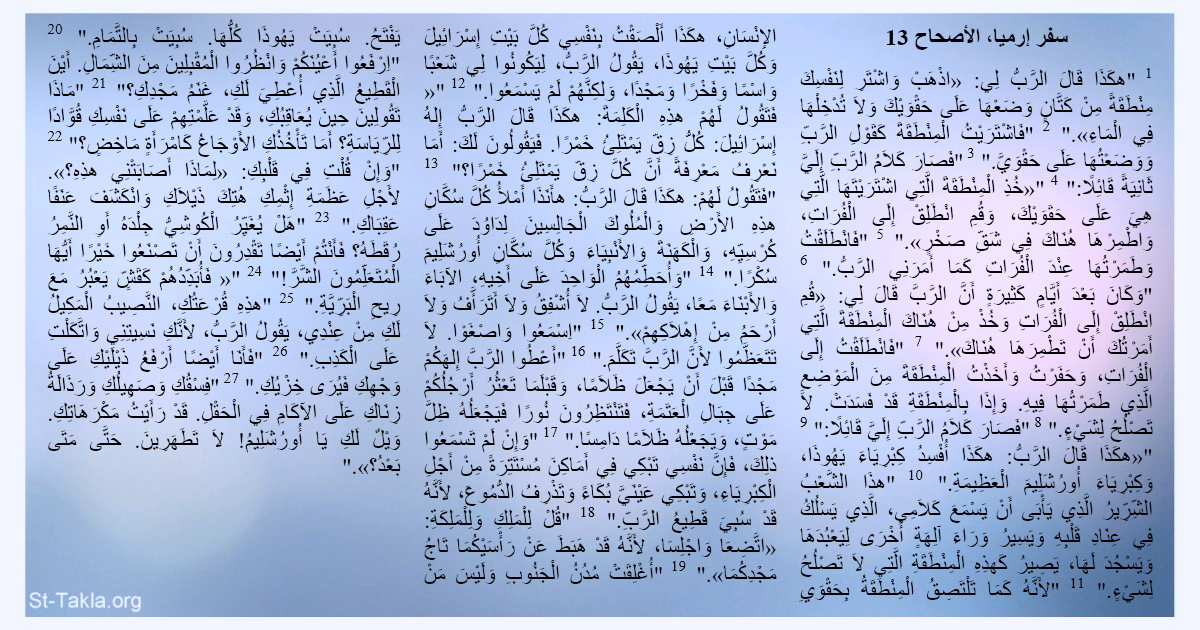 سفر إرميا، الأصحاح 13
1 "هكَذَا قَالَ الرَّبُّ لِي: «اذْهَبْ وَاشْتَرِ لِنَفْسِكَ
مِنْطَقَةً مِنْ كَتَّانٍ وَضَعْهَا عَلَى حَقْوَيْكَ وَلاَ تُدْخِلْهَا
فِي الْمَاءِ»." 2 "فَاشْتَرَيْتُ الْمِنْطَقَةَ كَقَوْلِ الرَّبِّ
وَوَضَعْتُهَا عَلَى حَقْوَيَّ." 3 "فَصَارَ كَلاَمُ الرَّبِّ إِلَيَّ
ثَانِيَةً قَائِلًا:" 4 "«خُذِ الْمِنْطَقَةَ الَّتِي اشْتَرَيْتَهَا الَّتِي
هِيَ عَلَى حَقْوَيْكَ، وَقُمِ انْطَلِقْ إِلَى الْفُرَاتِ،
وَاطْمِرْهَا هُنَاكَ فِي شَقِّ صَخْرٍ»." 5 "فَانْطَلَقْتُ
وَطَمَرْتُهَا عِنْدَ الْفُرَاتِ كَمَا أَمَرَنِي الرَّبُّ." 6
"وَكَانَ بَعْدَ أَيَّامٍ كَثِيرَةٍ أَنَّ الرَّبَّ قَالَ لِي: «قُمِ
انْطَلِقْ إِلَى الْفُرَاتِ وَخُذْ مِنْ هُنَاكَ الْمِنْطَقَةَ الَّتِي
أَمَرْتُكَ أَنْ تَطْمِرَهَا هُنَاكَ»." 7 "فَانْطَلَقْتُ إِلَى
الْفُرَاتِ، وَحَفَرْتُ وَأَخَذْتُ الْمِنْطَقَةَ مِنَ الْمَوْضِعِ
الَّذِي طَمَرْتُهَا فِيهِ. وَإِذَا بِالْمِنْطَقَةِ قَدْ فَسَدَتْ. لاَ
تَصْلُحُ لِشَيْءٍ." 8 "فَصَارَ كَلاَمُ الرَّبِّ إِلَيَّ قَائِلًا:" 9
"«هكَذَا قَالَ الرَّبُّ: هكَذَا أُفْسِدُ كِبْرِيَاءَ يَهُوذَا،
وَكِبْرِيَاءَ أُورُشَلِيمَ الْعَظِيمَةِ." 10 "هذَا الشَّعْبُ
الشِّرِّيرُ الَّذِي يَأْبَى أَنْ يَسْمَعَ كَلاَمِي، الَّذِي يَسْلُكُ
فِي عِنَادِ قَلْبِهِ وَيَسِيرُ وَرَاءَ آلِهَةٍ أُخْرَى لِيَعْبُدَهَا
وَيَسْجُدَ لَهَا، يَصِيرُ كَهذِهِ الْمِنْطَقَةِ الَّتِي لاَ تَصْلُحُ
لِشَيْءٍ." 11 "لأَنَّهُ كَمَا تَلْتَصِقُ الْمِنْطَقَةُ بِحَقْوَيِ
الإِنْسَانِ، هكَذَا أَلْصَقْتُ بِنَفْسِي كُلَّ بَيْتِ إِسْرَائِيلَ
وَكُلَّ بَيْتِ يَهُوذَا، يَقُولُ الرَّبُّ، لِيَكُونُوا لِي شَعْبًا
وَاسْمًا وَفَخْرًا وَمَجْدًا، وَلكِنَّهُمْ لَمْ يَسْمَعُوا." 12 "«
فَتَقُولُ لَهُمْ هذِهِ الْكَلِمَةَ: هكَذَا قَالَ الرَّبُّ إِلهُ
إِسْرَائِيلَ: كُلُّ زِقّ يَمْتَلِئُ خَمْرًا. فَيَقُولُونَ لَكَ: أَمَا
نَعْرِفُ مَعْرِفَةً أَنَّ كُلَّ زِقّ يَمْتَلِئُ خَمْرًا؟" 13
"فَتَقُولُ لَهُمْ: هكَذَا قَالَ الرَّبُّ: هأَنَذَا أَمْلأُ كُلَّ سُكَّانِ
هذِهِ الأَرْضِ وَالْمُلُوكَ الْجَالِسِينَ لِدَاوُدَ عَلَى
كُرْسِيِّهِ، وَالْكَهَنَةَ وَالأَنْبِيَاءَ وَكُلَّ سُكَّانِ أُورُشَلِيمَ
سُكْرًا." 14 "وَأُحَطِّمُهُمُ الْوَاحِدَ عَلَى أَخِيهِ، الآبَاءَ
وَالأَبْنَاءَ مَعًا، يَقُولُ الرَّبُّ. لاَ أُشْفِقُ وَلاَ أَتَرَأَّفُ وَلاَ
أَرْحَمُ مِنْ إِهْلاَكِهِمْ»." 15 "اِسْمَعُوا وَاصْغَوْا. لاَ
تَتَعَظَّمُوا لأَنَّ الرَّبَّ تَكَلَّمَ." 16 "أَعْطُوا الرَّبَّ إِلهَكُمْ
مَجْدًا قَبْلَ أَنْ يَجْعَلَ ظَلاَمًا، وَقَبْلَمَا تَعْثُرُ أَرْجُلُكُمْ
عَلَى جِبَالِ الْعَتَمَةِ، فَتَنْتَظِرُونَ نُورًا فَيَجْعَلُهُ ظِلَّ
مَوْتٍ، وَيَجْعَلُهُ ظَلاَمًا دَامِسًا." 17 "وَإِنْ لَمْ تَسْمَعُوا
ذلِكَ، فَإِنَّ نَفْسِي تَبْكِي فِي أَمَاكِنَ مُسْتَتِرَةٍ مِنْ أَجْلِ
الْكِبْرِيَاءِ، وَتَبْكِي عَيْنَيَّ بُكَاءً وَتَذْرِفُ الدُّمُوعَ، لأَنَّهُ
قَدْ سُبِيَ قَطِيعُ الرَّبِّ." 18 "قُلْ لِلْمَلِكِ وَلِلْمَلِكَةِ:
«اتَّضِعَا وَاجْلِسَا، لأَنَّهُ قَدْ هَبَطَ عَنْ رَأْسَيْكُمَا تَاجُ
مَجْدِكُمَا»." 19 "أُغْلِقَتْ مُدُنُ الْجَنُوبِ وَلَيْسَ مَنْ
يَفْتَحُ. سُبِيَتْ يَهُوذَا كُلُّهَا. سُبِيَتْ بِالتَّمَامِ." 20
"اِرْفَعُوا أَعْيُنَكُمْ وَانْظُرُوا الْمُقْبِلِينَ مِنَ الشِّمَالِ. أَيْنَ
الْقَطِيعُ الَّذِي أُعْطِيَ لَكِ، غَنَمُ مَجْدِكِ؟" 21 "مَاذَا
تَقُولِينَ حِينَ يُعَاقِبُكِ، وَقَدْ عَلَّمْتِهِمْ عَلَى نَفْسِكِ قُوَّادًا
لِلرِّيَاسَةِ؟ أَمَا تَأْخُذُكِ الأَوْجَاعُ كَامْرَأَةٍ مَاخِضٍ؟" 22
"وَإِنْ قُلْتِ فِي قَلْبِكِ: «لِمَاذَا أَصَابَتْنِي هذِهِ؟».
لأَجْلِ عَظَمَةِ إِثْمِكِ هُتِكَ ذَيْلاَكِ وَانْكَشَفَ عَنْفًا
عَقِبَاكِ." 23 "هَلْ يُغَيِّرُ الْكُوشِيُّ جِلْدَهُ أَوِ النَّمِرُ
رُقَطَهُ؟ فَأَنْتُمْ أَيْضًا تَقْدِرُونَ أَنْ تَصْنَعُوا خَيْرًا أَيُّهَا
الْمُتَعَلِّمُونَ الشَّرَّ!" 24 "« فَأُبَدِّدُهُمْ كَقَشٍّ يَعْبُرُ مَعَ
رِيحِ الْبَرِّيَّةِ." 25 "هذِهِ قُرْعَتُكِ، النَّصِيبُ الْمَكِيلُ
لَكِ مِنْ عِنْدِي، يَقُولُ الرَّبُّ، لأَنَّكِ نَسِيتِنِي وَاتَّكَلْتِ
عَلَى الْكَذِبِ." 26 "فَأَنَا أَيْضًا أَرْفَعُ ذَيْلَيْكِ عَلَى
وَجْهِكِ فَيُرَى خِزْيُكِ." 27 "فِسْقُكِ وَصَهِيلُكِ وَرَذَالَةُ
زِنَاكِ عَلَى الآكَامِ فِي الْحَقْلِ. قَدْ رَأَيْتُ مَكْرَهَاتِكِ.
وَيْلٌ لَكِ يَا أُورُشَلِيمُ! لاَ تَطْهُرِينَ. حَتَّى مَتَى
بَعْدُ؟»."
St-Takla.org